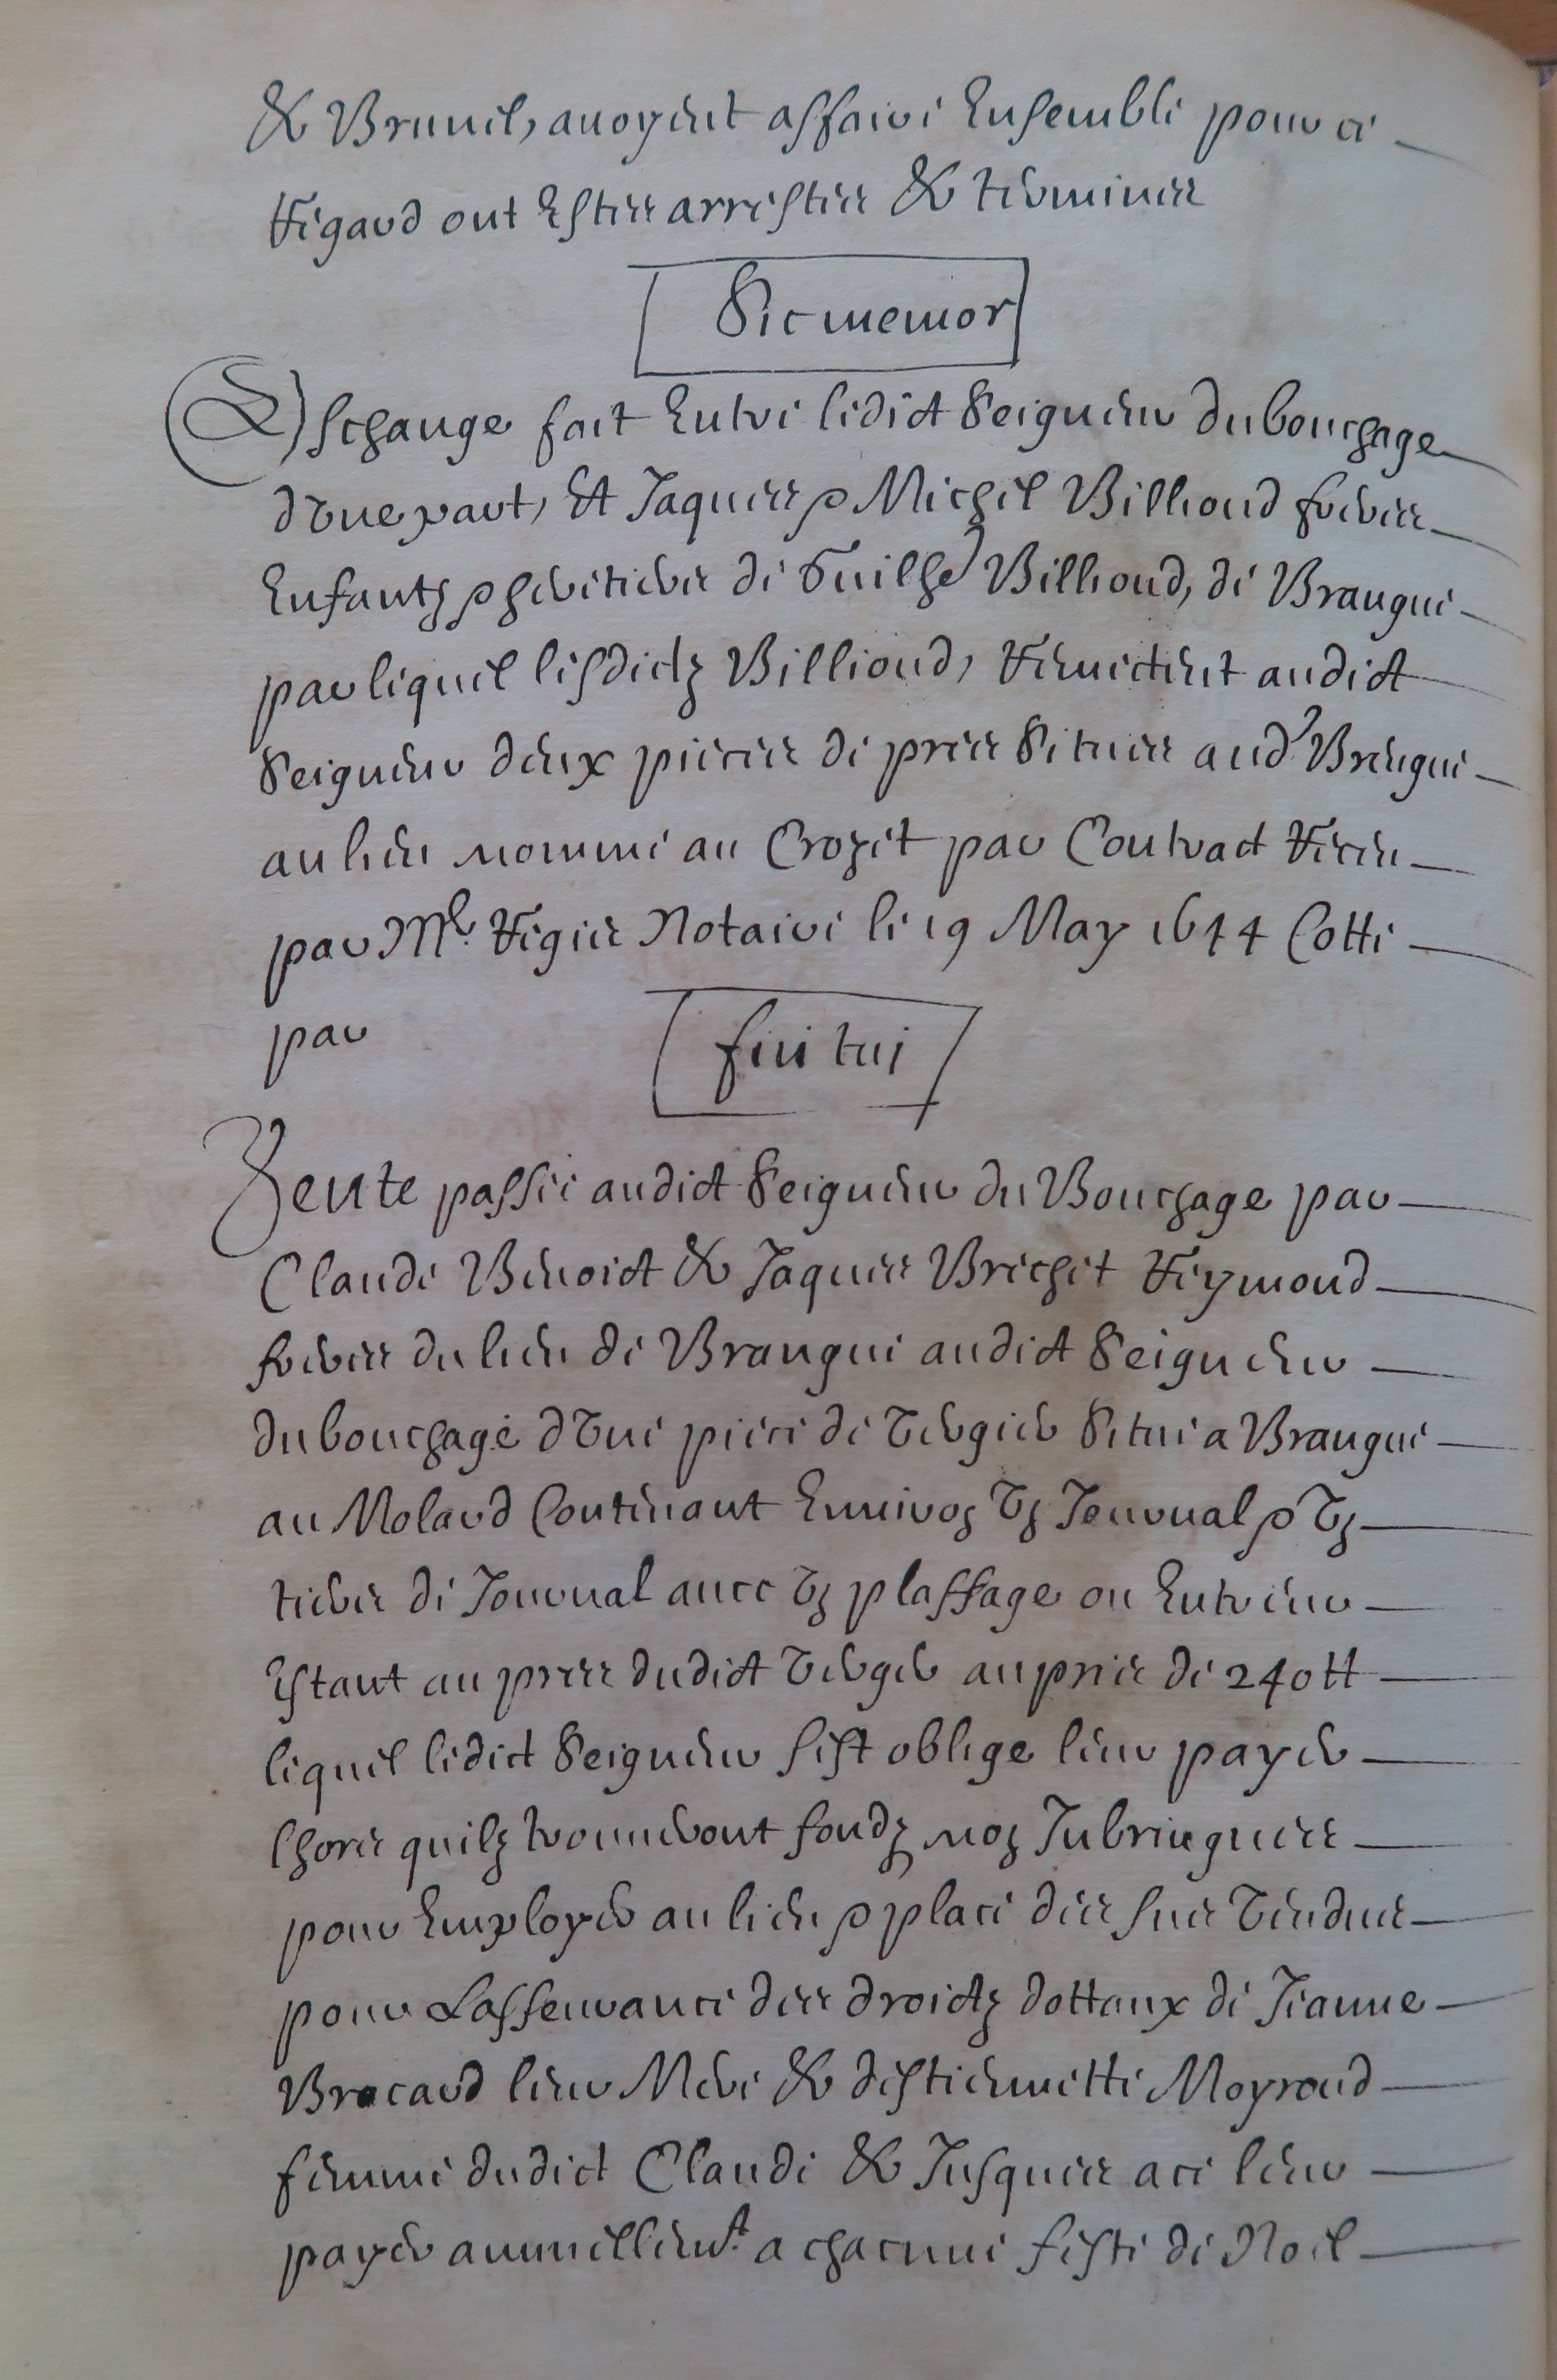 & Brunel, avoyent affaire Ensemble pour ce
Regard ont Estees arrestees & terminees
Sic memor
Eschange fait Entre ledict Seigneur du bouchage
d'une part, Et Jaques & Michel Billioud freres
Enfantz & heretiers de Guilhe Billioud, de Brangue
par lequel lesdictz Billioud, Remettent audict
Seigneur deux pieces de prees Situees aud Brengue
au lieu nomme au Crozet par Contract Receu
par Mr. Regies Notaire le 19 May 1644 Cotte
par
fini tui
Vente passée audict Seigneur du Bouchage par
Claude Benoict & Jaques Brechet Reymond
freres du lieu de Brangue audict Seigneur
du bouchage d'une piece de vergier Situe a Brangue
au Molard Contenant Environ un Journal & un
tiers de Journal avec un plassage ou Entreur
Estant au pres dudict verger au pries de 240 tt
lequel ledict Seigneur sest oblige leur payer
lhors quilz trouveront fondz non Inbringues
pour Employer au lieu & place des sus vendus
pour Lasseurance des droictz dottaux de Jeanne
Brocard leur Mere & destiennette Moyroud
femme dudict Claude & Jusques a ce leur
payer annuellemt. a chacune feste de Noel